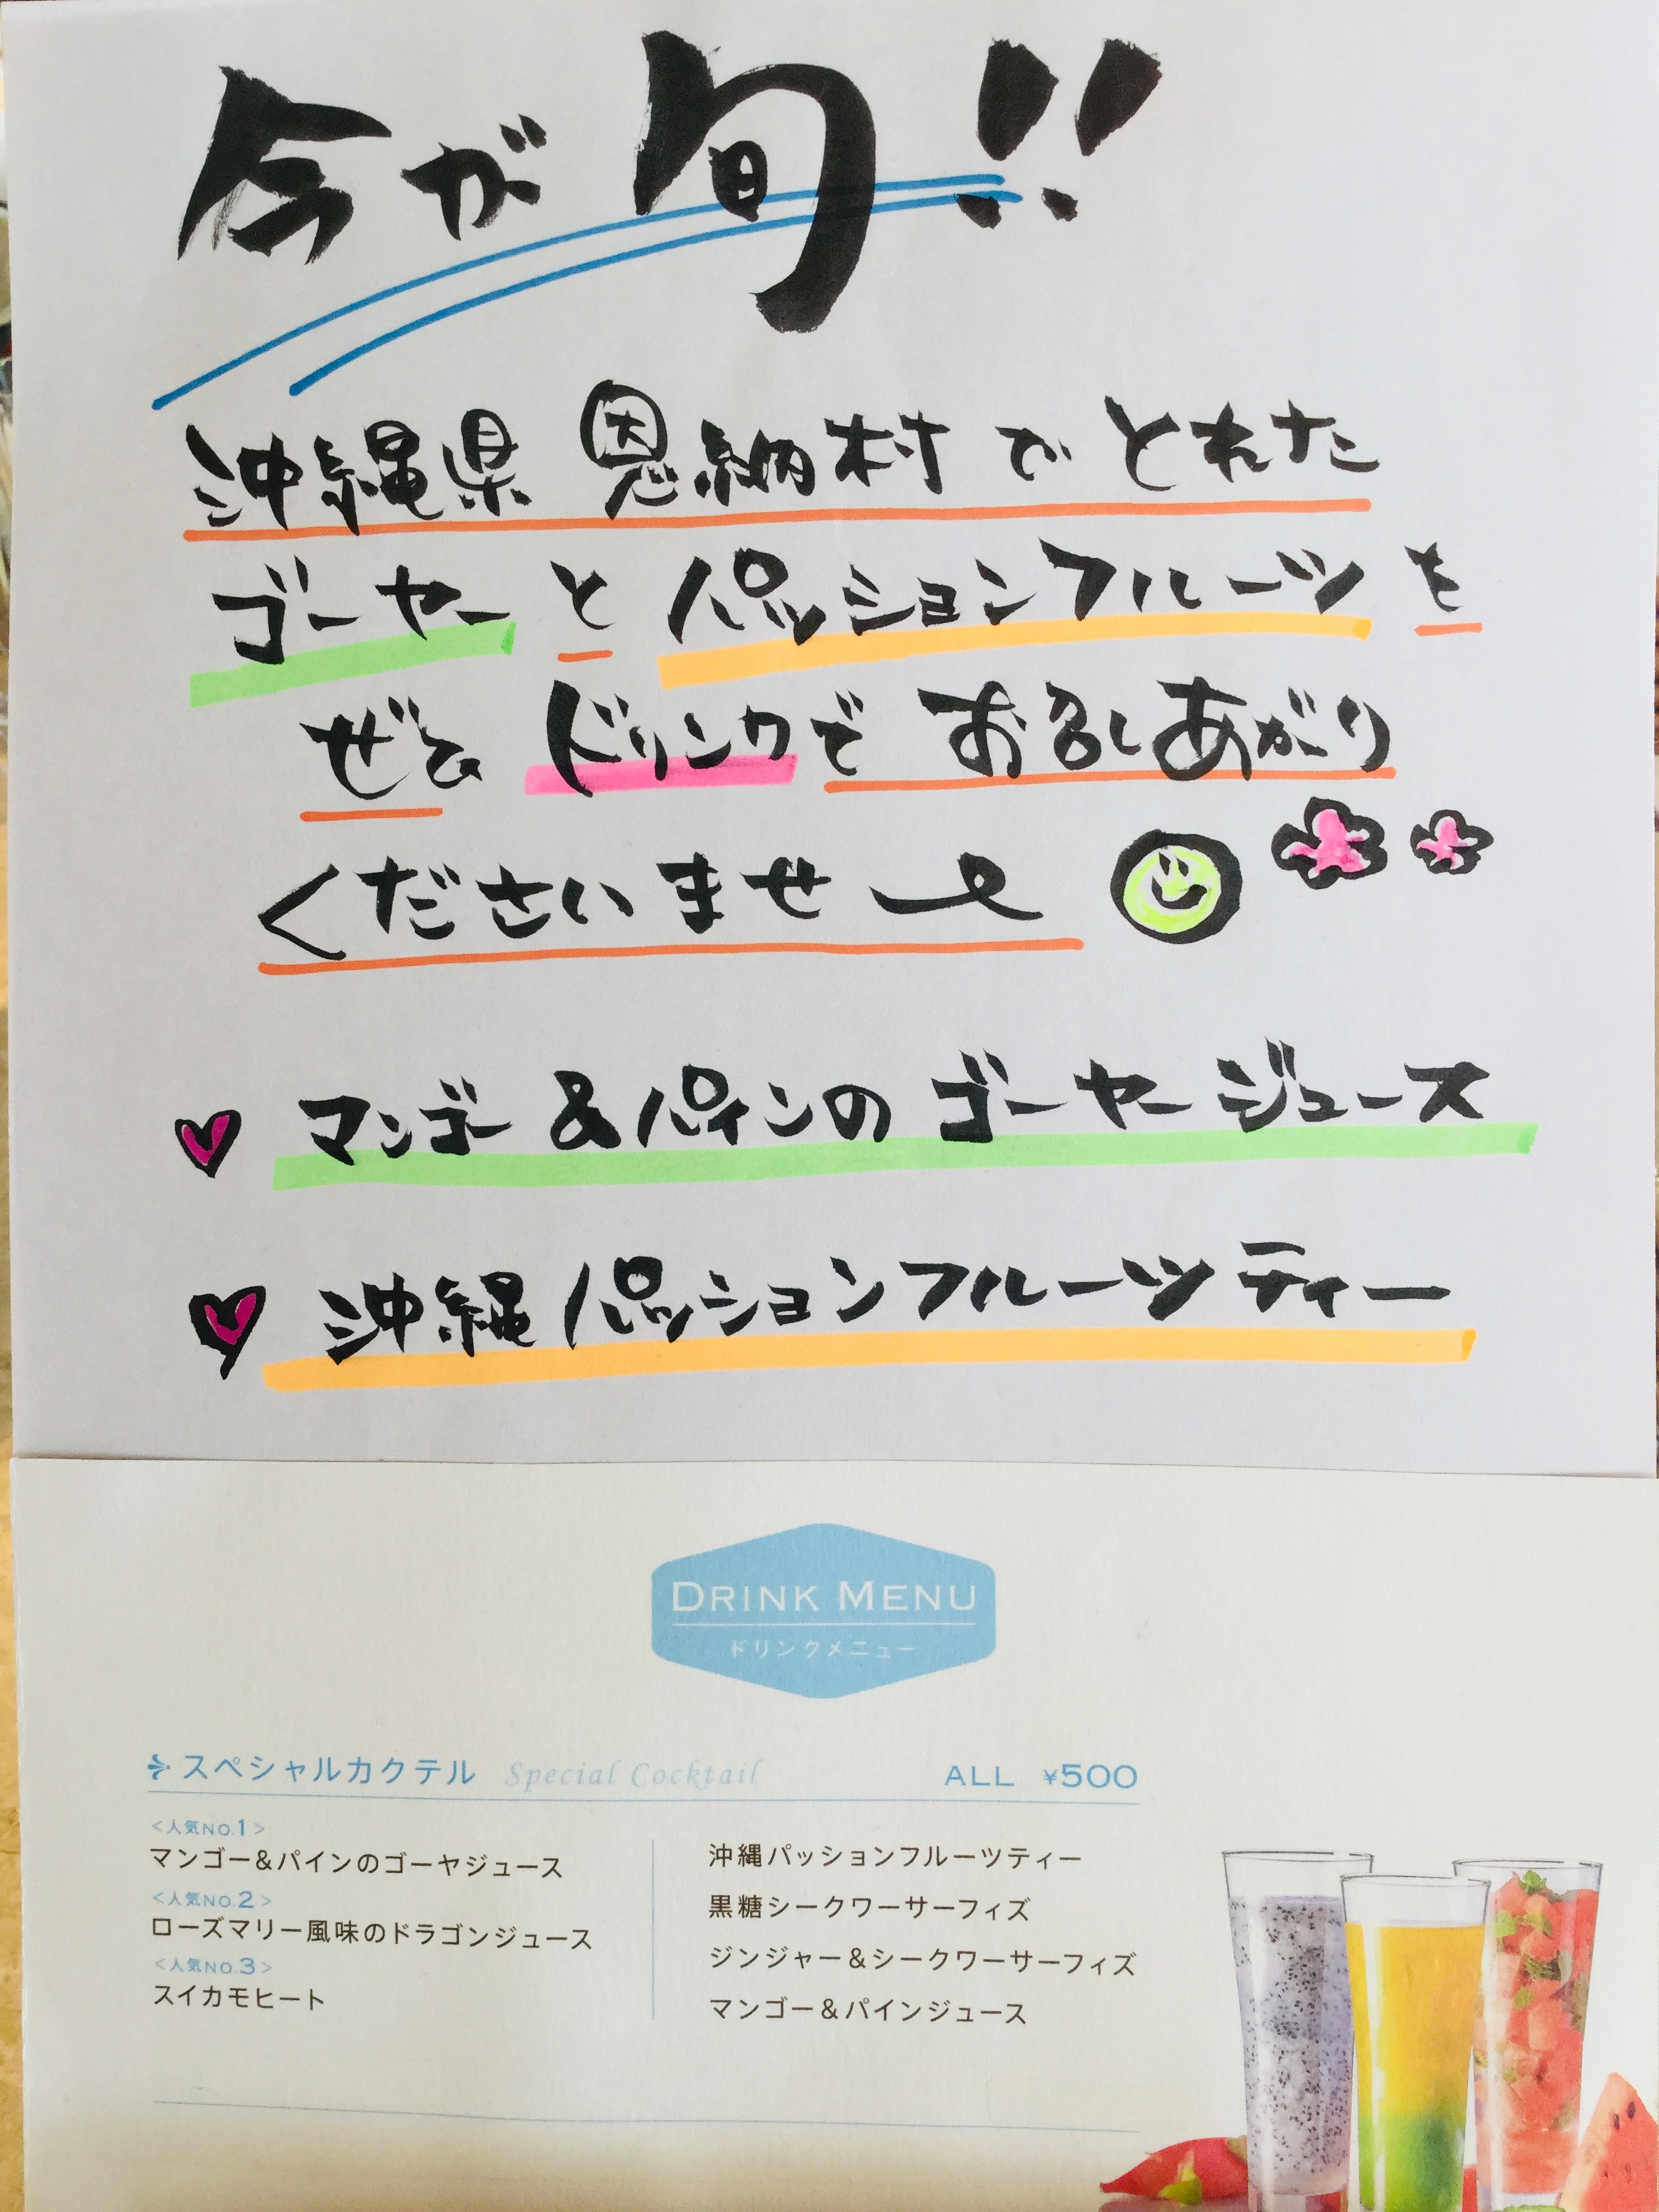 今が旬!!
沖縄県 恩納村でとれた
ゴーヤーとパッションフルーツを
ぜひドリンクでお召しあがり
くださいませ～
マンゴー&パインのゴーヤージュース
沖縄パッションフルーツティー
DRINK MENU
ドリンクメニュー
スペシャルカクテル Special Cocktail ALL ¥500
<人気NO.1>
マンゴー&パインのゴーヤジュース
<人気NO.2>
ローズマリー風味のドラゴンジュース
<人気NO.3>
スイカモヒート
沖縄パッションフルーツティー
黒糖シークワーサーフィズ
ジンジャー&シークワーサーフィズ
マンゴー&パインジュース